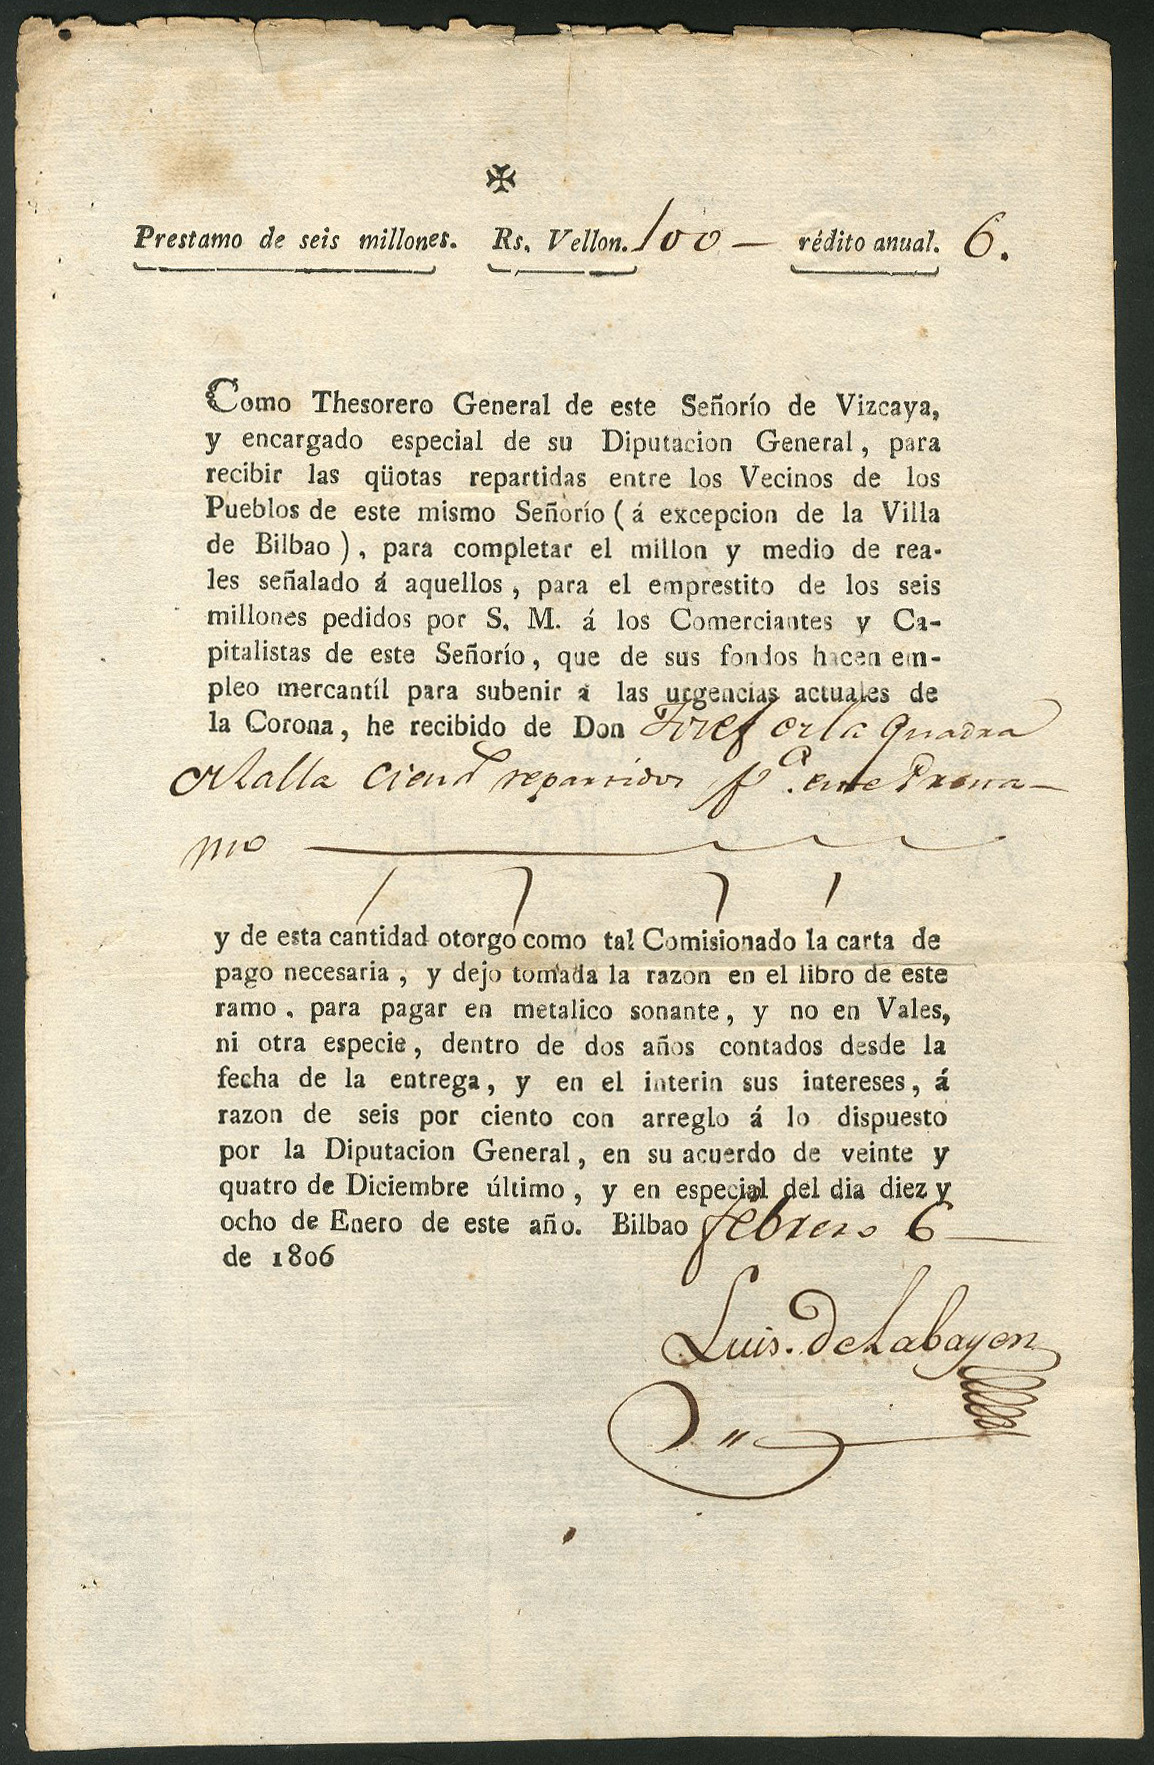 ✠
Prestamo de seis millones. Rs. Vellon. 100 — rédito anual. 6.
Como Thesorero General de este Señorío de Vizcaya,
y encargado especial de su Diputacion General, para
recibir las qüotas repartidas entre los Vecinos de los
Pueblos de este mismo Señorío (á excepcion de la Villa
de Bilbao), para completar el millon y medio de rea-
les señalado á aquellos, para el emprestito de los seis
millones pedidos por S. M. á los Comerciantes y Ca-
pitalistas de este Señorío, que de sus fondos hacen em-
pleo mercantíl para subenir á las urgencias actuales de
la Corona, he recibido de Don Josef de la Quadra
repartidos
mo
y de esta cantidad otorgo como tal Comisionado la carta de
pago necesaria, y dejo tomada la razon en el libro de este
ramo, para pagar en metalico sonante, y no en Vales,
ni otra especie, dentro de dos años contados desde la
fecha de la entrega, y en el interin sus intereses, á
razon de seis por ciento con arreglo á lo dispuesto
por la Diputacion General, en su acuerdo de veinte y
quatro de Diciembre último, y en especial del dia diez y
ocho de Enero de este año. Bilbao febrero 6
de 1806
Luis. de Labayen